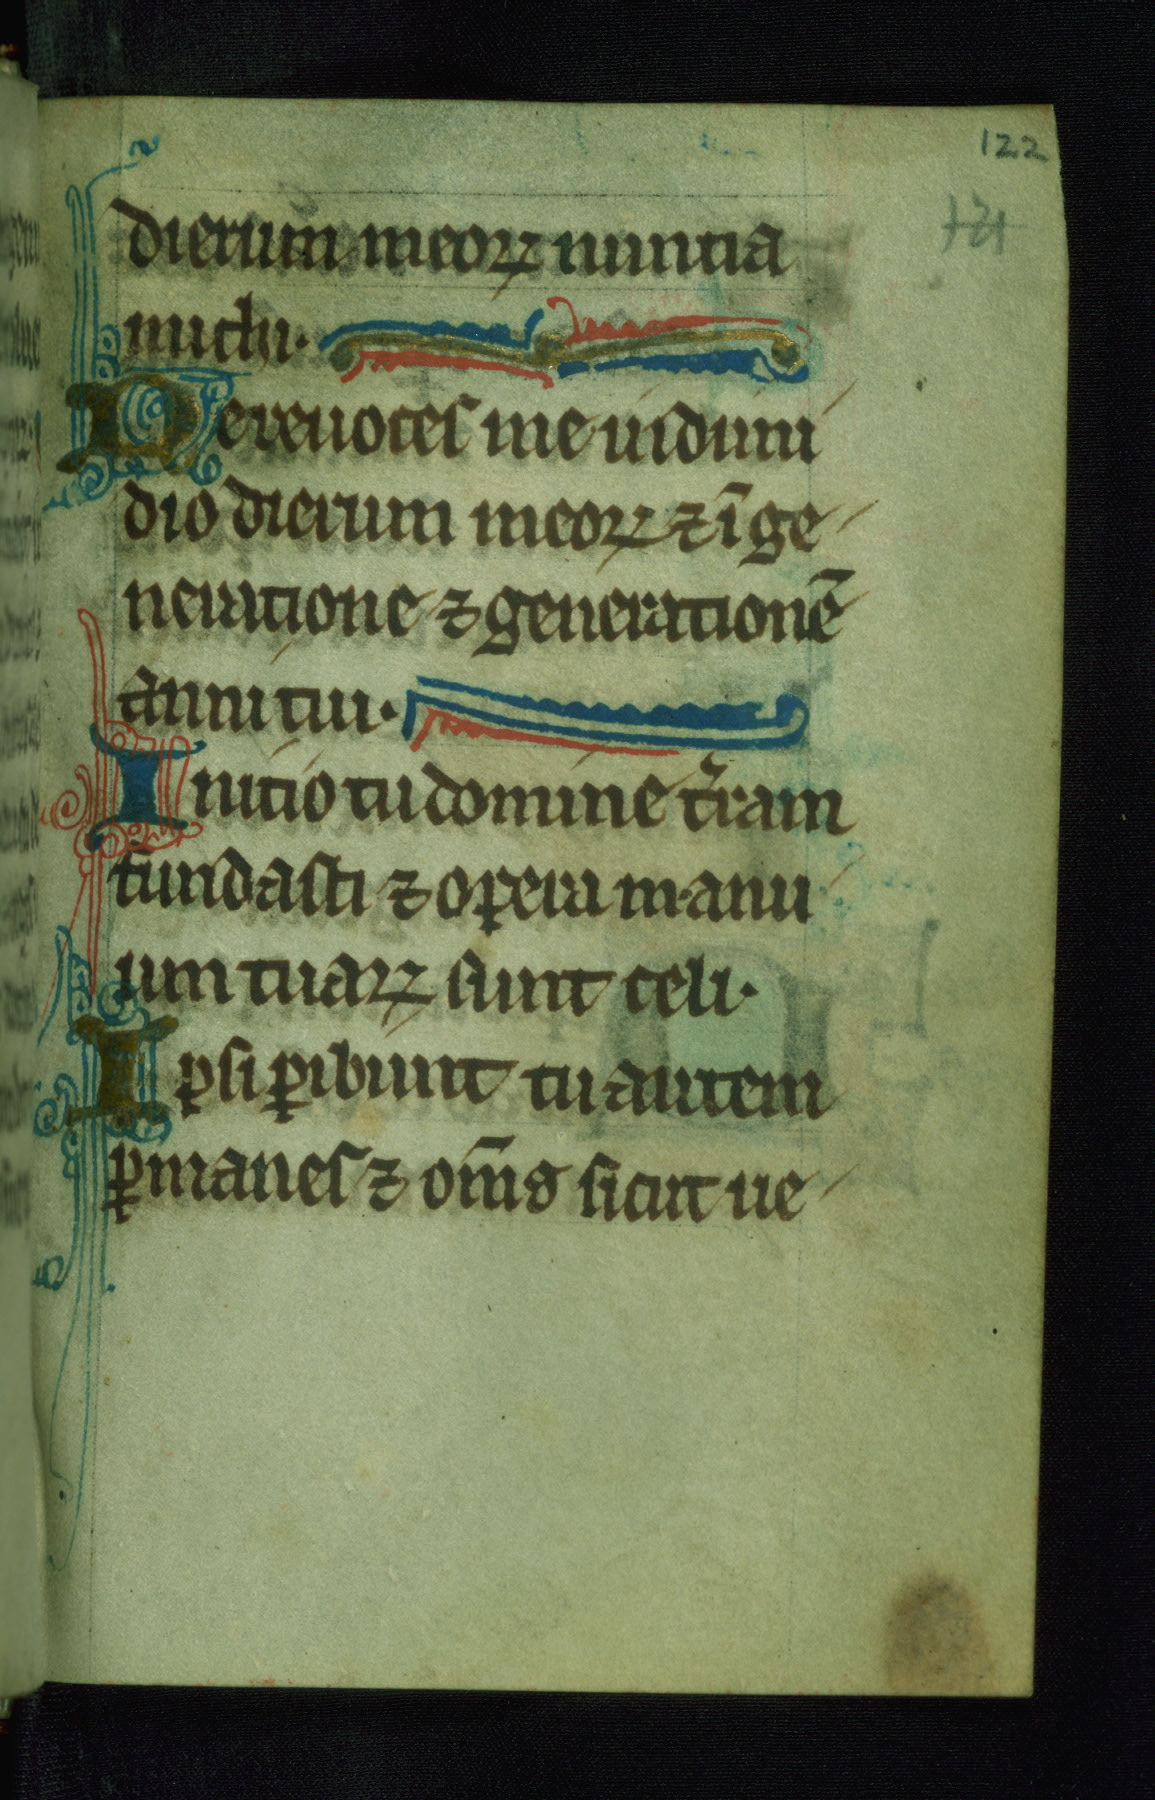 122
121
dierum meoꝝ nuntia
michi·
Ne reuoces me in dimi
dio dierum meoꝝ ⁊ ī ge
neratione ⁊ generationē
anni tui·
Initio tu domine t̄ram
fundasti ⁊ opera manu
um tuaꝝ sunt celi·
Ipsi ꝑibunt tu autem
ꝑmanes ⁊ om̄s sicut ue